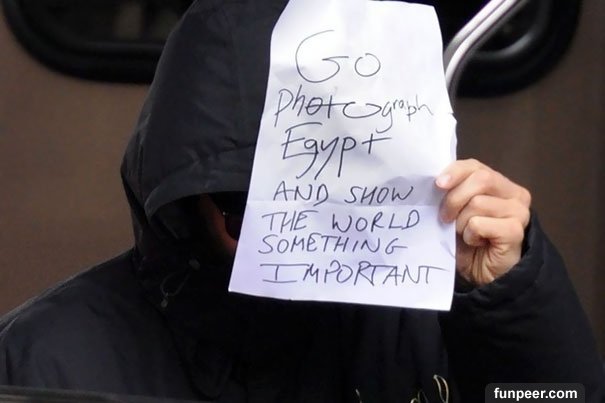 Go
photograph
Egypt
AND SHOW
THE WORLD
SOMETHING
IMPORTANT
funpeer.com